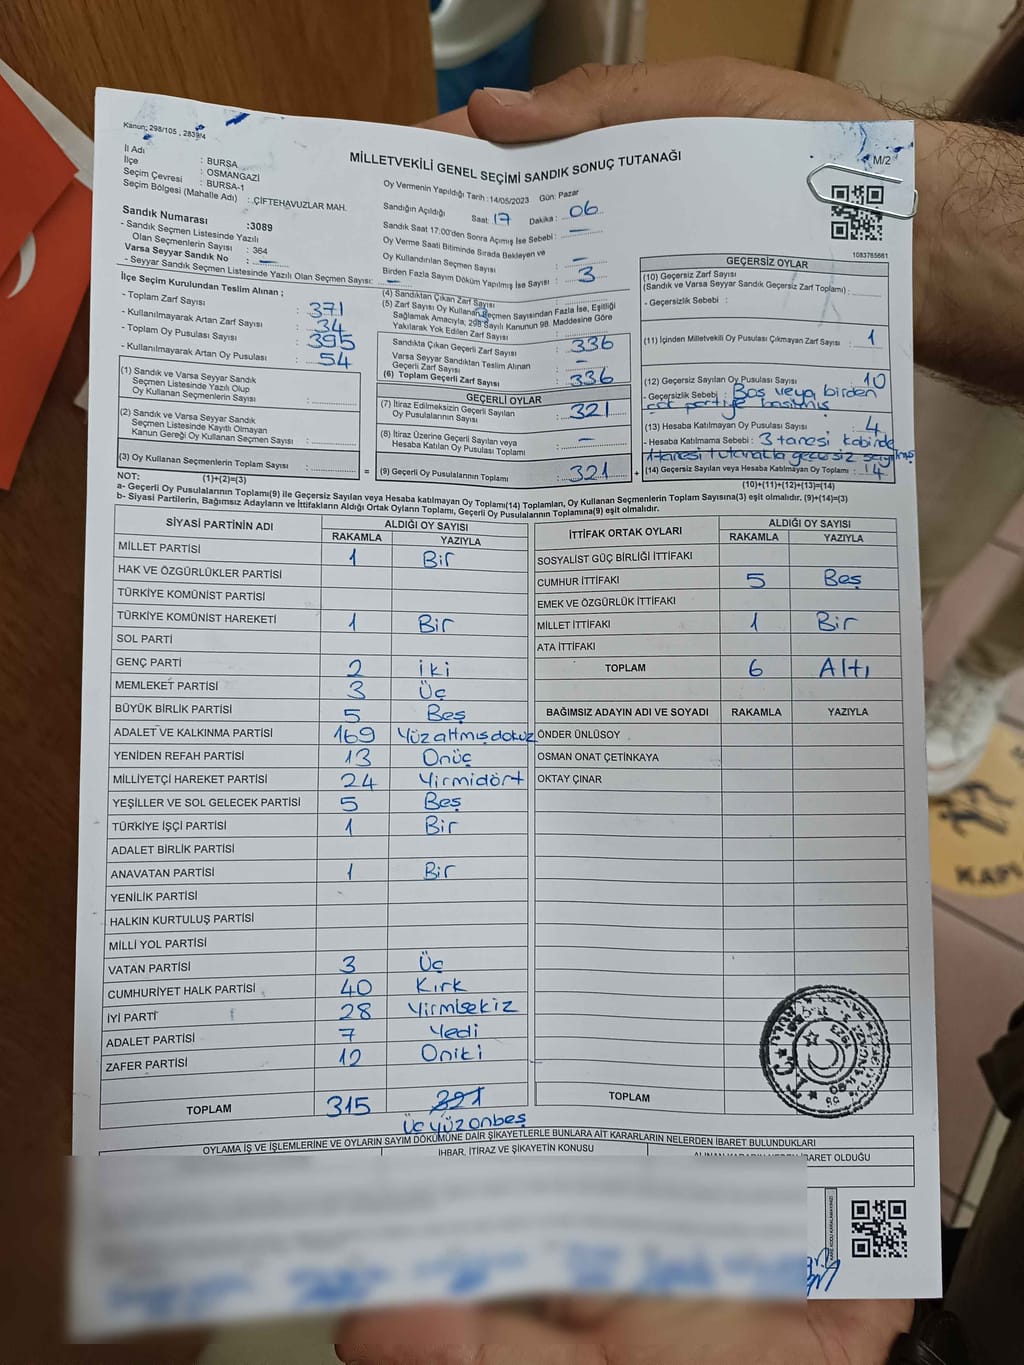 Kanun; 298/105 , 2839/4
M/2
MİLLETVEKİLİ GENEL SEÇİMİ SANDIK SONUÇ TUTANAĞI
İl Adı : BURSA
İlçe : OSMANGAZİ
Seçim Çevresi : BURSA-1
Seçim Bölgesi (Mahalle Adı) : ÇİFTEHAVUZLAR MAH.
Sandık Numarası :3089
- Sandık Seçmen Listesinde Yazılı
Olan Seçmenlerin Sayısı : 364
Varsa Seyyar Sandık No : —
- Seyyar Sandık Seçmen Listesinde Yazılı Olan Seçmen Sayısı: —
İlçe Seçim Kurulundan Teslim Alınan ;
- Toplam Zarf Sayısı : 371
- Kullanılmayarak Artan Zarf Sayısı : 34
- Toplam Oy Pusulası Sayısı : 395
- Kullanılmayarak Artan Oy Pusulası : 54
(1) Sandık ve Varsa Seyyar Sandık
Seçmen Listesinde Yazılı Olup
Oy Kullanan Seçmenlerin Sayısı :
(2) Sandık ve Varsa Seyyar Sandık
Seçmen Listesinde Kayıtlı Olmayan
Kanun Gereği Oy Kullanan Seçmen Sayısı :
(3) Oy Kullanan Seçmenlerin Toplam Sayısı :
(1)+(2)=(3)
Oy Vermenin Yapıldığı Tarih : 14/05/2023 Gün: Pazar
Sandığın Açıldığı Saat: 17 Dakika : 06
Sandık Saat 17.00'den Sonra Açımış İse Sebebi : —
Oy Verme Saati Bitiminde Sırada Bekleyen ve
Oy Kullandırılan Seçmen Sayısı : —
Birden Fazla Sayım Döküm Yapılmış İse Sayısı : 3
(4) Sandıktan Çıkan Zarf Sayısı :
(5) Zarf Sayısı Oy Kullanan Seçmen Sayısından Fazla İse, Eşitliği
Sağlamak Amacıyla, 298 Sayılı Kanunun 98. Maddesine Göre
Yakılarak Yok Edilen Zarf Sayısı :
Sandıkta Çıkan Geçerli Zarf Sayısı : 336
Varsa Seyyar Sandıktan Teslim Alınan
Geçerli Zarf Sayısı : —
(6) Toplam Geçerli Zarf Sayısı : 336
GEÇERLİ OYLAR
(7) İtiraz Edilmeksizin Geçerli Sayılan
Oy Pusulalarının Sayısı : 321
(8) İtiraz Üzerine Geçerli Sayılan veya
Hesaba Katılan Oy Pusulası Toplamı : —
= (9) Geçerli Oy Pusulalarının Toplamı : 321 +
1083765661
GEÇERSİZ OYLAR
(10) Geçersiz Zarf Sayısı
(Sandık ve Varsa Seyyar Sandık Geçersiz Zarf Toplamı) :
- Geçersizlik Sebebi :
(11) İçinden Milletvekili Oy Pusulası Çıkmayan Zarf Sayısı : 1
(12) Geçersiz Sayılan Oy Pusulası Sayısı : 10
- Geçersizlik Sebebi : Boş veya birden
çok partiye basılmış
(13) Hesaba Katılmayan Oy Pusulası Sayısı : 4
- Hesaba Katılmama Sebebi : 3 tanesi kabinde
1 tanesi tutanakla geçersiz sayılmış
(14) Geçersiz Sayılan veya Hesaba Katılmayan Oy Toplamı : 14
(10)+(11)+(12)+(13)=(14)
NOT:
a- Geçerli Oy Pusulalarının Toplamı(9) ile Geçersiz Sayılan veya Hesaba katılmayan Oy Toplamı(14) Toplamları, Oy Kullanan Seçmenlerin Toplam Sayısına(3) eşit olmalıdır. (9)+(14)=(3)
b- Siyasi Partilerin, Bağımsız Adayların ve İttifakların Aldığı Ortak Oyların Toplamı, Geçerli Oy Pusulalarının Toplamına(9) eşit olmalıdır.
SİYASİ PARTİNİN ADI ALDIĞI OY SAYISI
RAKAMLA YAZIYLA
MİLLET PARTİSİ 1 Bir
HAK VE ÖZGÜRLÜKLER PARTİSİ
TÜRKİYE KOMÜNİST PARTİSİ
TÜRKİYE KOMÜNİST HAREKETİ 1 Bir
SOL PARTİ
GENÇ PARTİ 2 iki
MEMLEKET PARTİSİ 3 Üç
BÜYÜK BİRLİK PARTİSİ 5 Beş
ADALET VE KALKINMA PARTİSİ 169 Yüzaltmışdokuz
YENİDEN REFAH PARTİSİ 13 Onüç
MİLLİYETÇİ HAREKET PARTİSİ 24 Yirmidört
YEŞİLLER VE SOL GELECEK PARTİSİ 5 Beş
TÜRKİYE İŞÇİ PARTİSİ 1 Bir
ADALET BİRLİK PARTİSİ
ANAVATAN PARTİSİ 1 Bir
YENİLİK PARTİSİ
HALKIN KURTULUŞ PARTİSİ
MİLLİ YOL PARTİSİ
VATAN PARTİSİ 3 Üç
CUMHURİYET HALK PARTİSİ 40 Kırk
İYİ PARTİ 28 Yirmisekiz
ADALET PARTİSİ 7 Yedi
ZAFER PARTİSİ 12 Oniki
TOPLAM 315 321
Üçyüzonbeş
İTTİFAK ORTAK OYLARI ALDIĞI OY SAYISI
RAKAMLA YAZIYLA
SOSYALİST GÜÇ BİRLİĞİ İTTİFAKI
CUMHUR İTTİFAKI 5 Beş
EMEK VE ÖZGÜRLÜK İTTİFAKI
MİLLET İTTİFAKI 1 Bir
ATA İTTİFAKI
TOPLAM 6 Altı
BAĞIMSIZ ADAYIN ADI VE SOYADI RAKAMLA YAZIYLA
ÖNDER ÜNLÜSOY
OSMAN ONAT ÇETİNKAYA
OKTAY ÇINAR
TOPLAM
OYLAMA İŞ VE İŞLEMLERİNE VE OYLARIN SAYIM DÖKÜMÜNE DAİR ŞİKAYETLERLE BUNLARA AİT KARARLARIN NELERDEN İBARET BULUNDUKLARI
İHBAR, İTİRAZ VE ŞİKAYETİN KONUSU
ALINAN KARARIN NEDEN İBARET OLDUĞU
KAPI